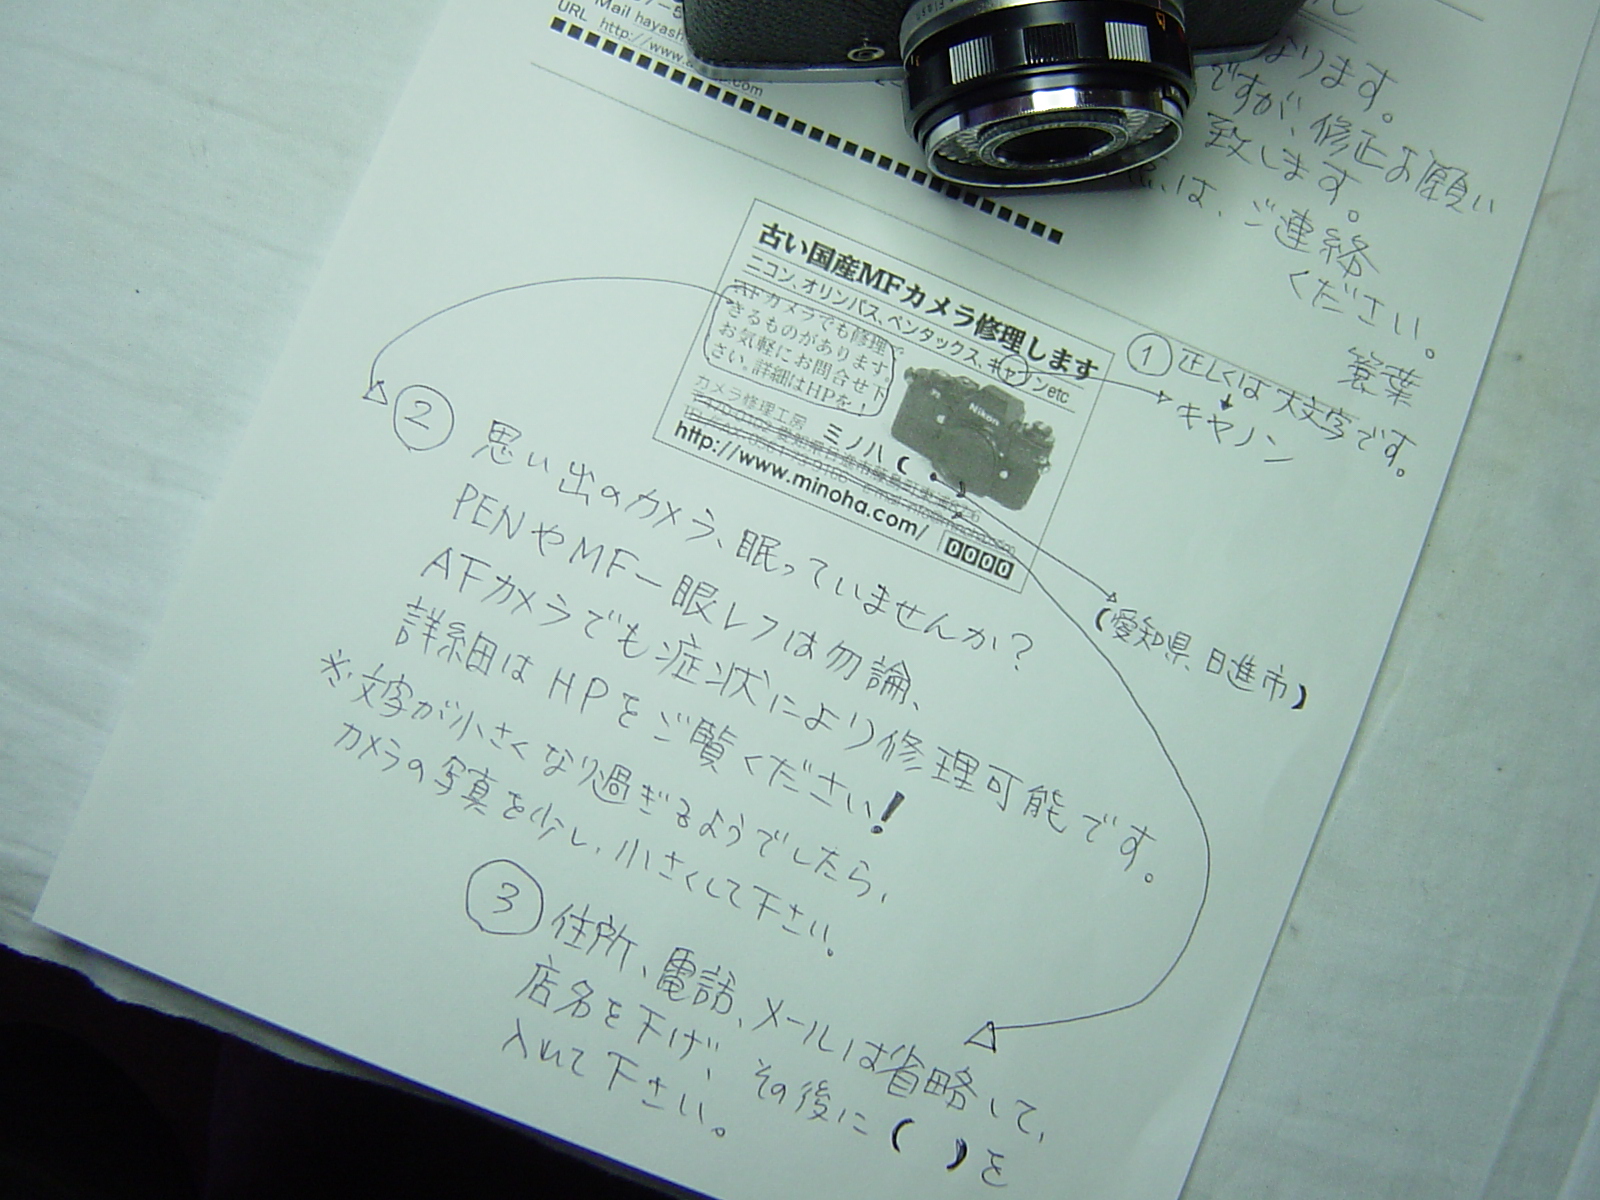 Mail hayash
URL http://www.
com
なります。
ですが、修正お願い
致します。
は、ご連絡
ください。
簑葉
古い国産MFカメラ修理します
ニコン、オリンパス、ペンタックス、キャノンetc
AFカメラでも修理で
きるものがあります。
お気軽にお問合せ下
さい。詳細はHPを!
Nikon
カメラ修理工房
ミノハ
http://www.minoha.com/
0000
① 正しくは大文字です。
キヤノン
(愛知県日進市)
② 思い出のカメラ、眠っていませんか?
PENやMF一眼レフは勿論、
AFカメラでも症状により修理可能です。
詳細はHPをご覧ください!
※文字が小さくなり過ぎるようでしたら、
カメラの写真を少し、小さくして下さい。
③ 住所、電話、メールは省略して、
店名を下げ、その後に( )を
入れて下さい。